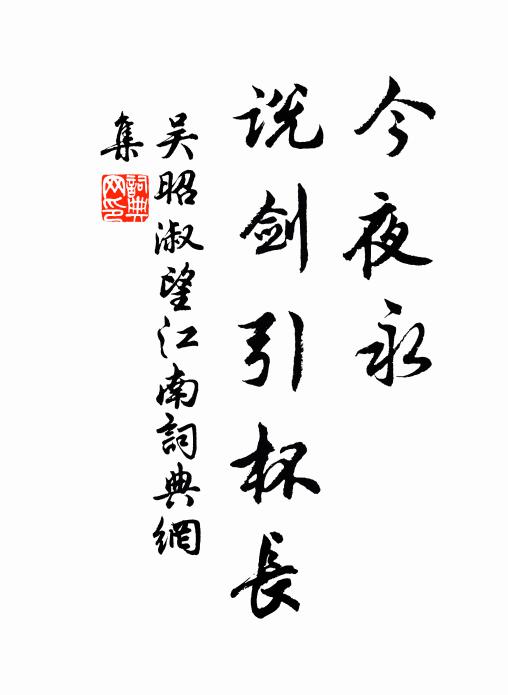 今夜永
说剑引杯長
吴昭淑望江南詞典網
集
詞典
网印